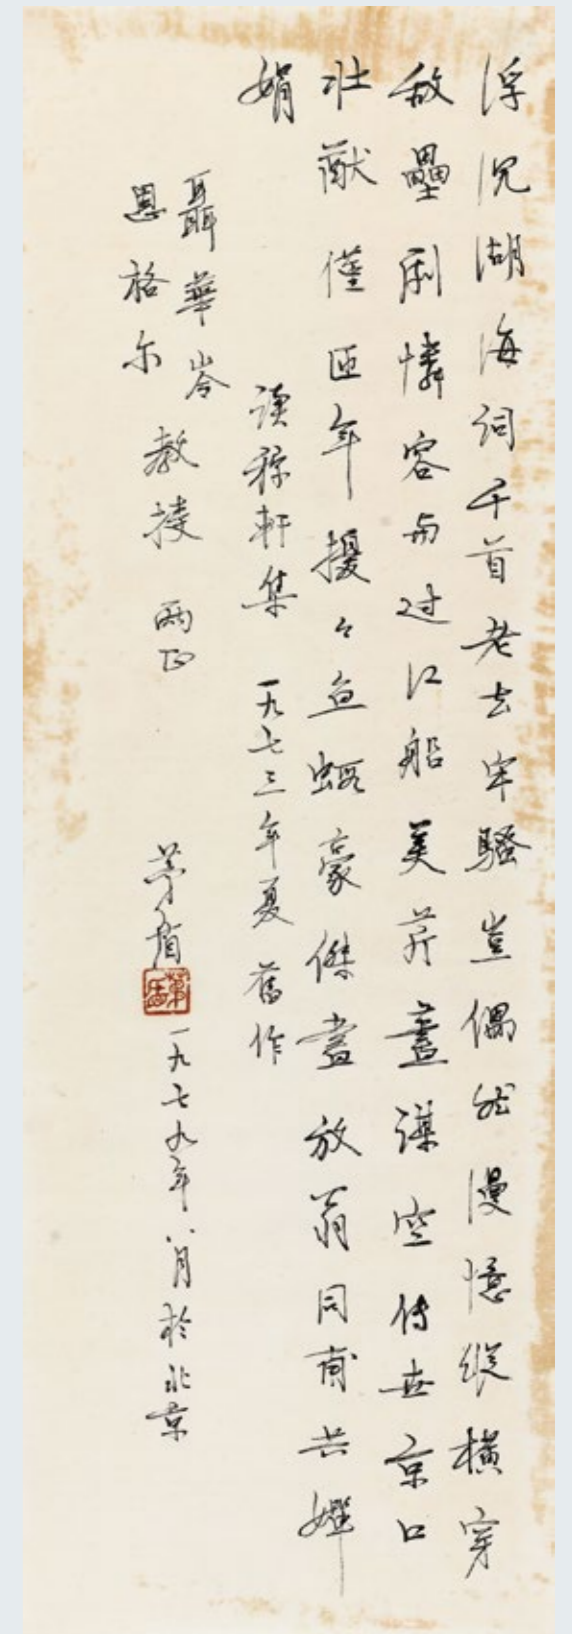 浮沉湖海词千首老去牢騷豈偶然漫憶縱橫穿
敌壘剧憐容与过江船美芹藎謀空传世京口
壮猷僅匝年擾々鱼蝦豪傑盡放翁同甫共嬋
娟
读稼軒集 一九七三年夏舊作
聶華苓
恩格尔 教授 两正
茅盾
茅盾
一九七九年八月於北京